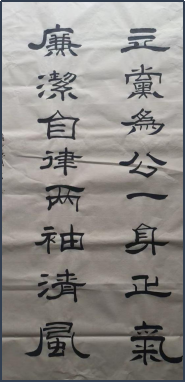 立黨為公一身正氣
廉潔自律两袖清風